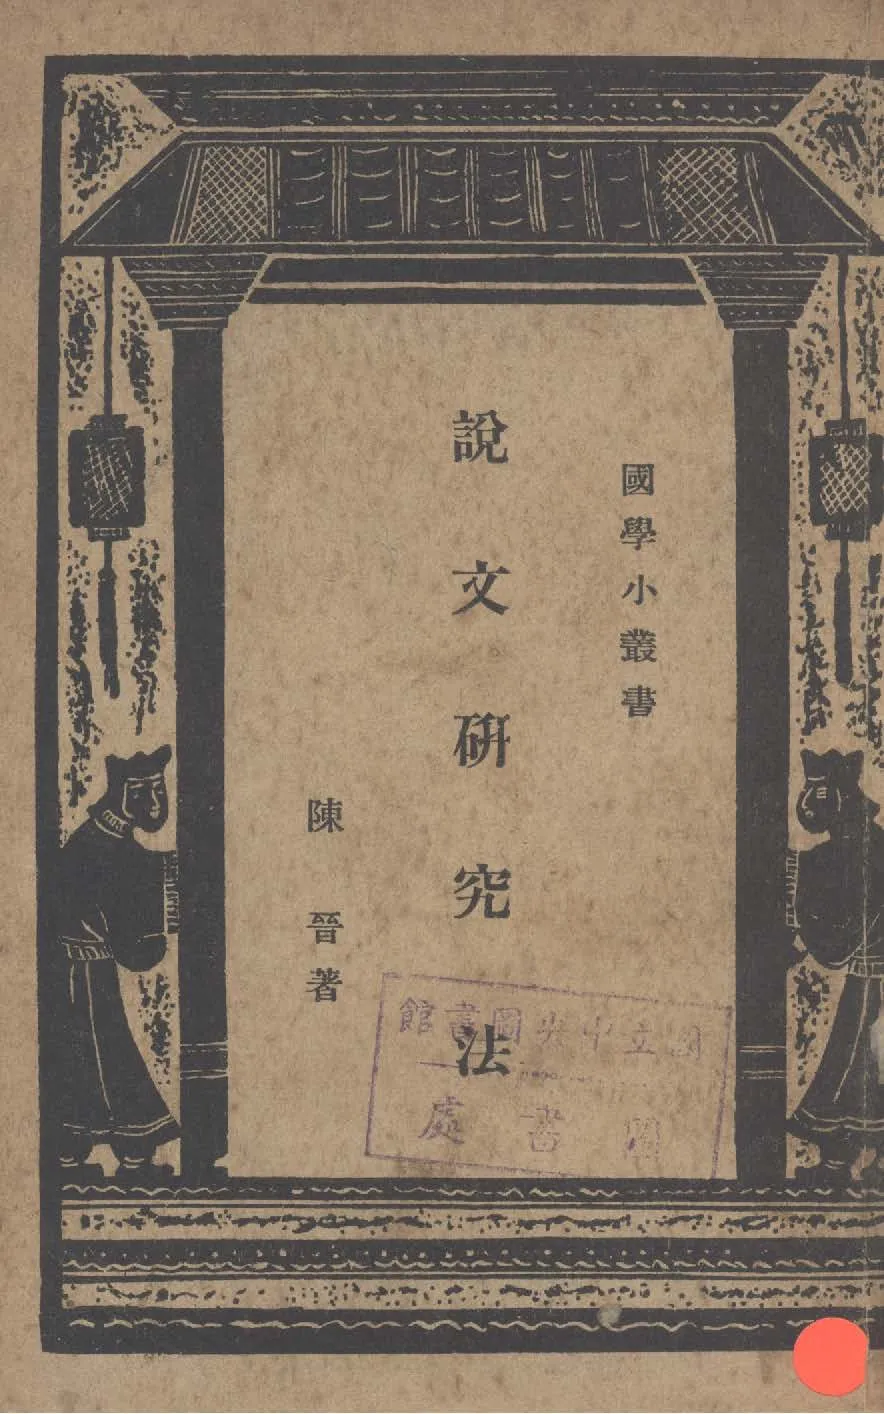 國學小叢書
說文研究法
陳晉著
國立中央圖書館
閱書處